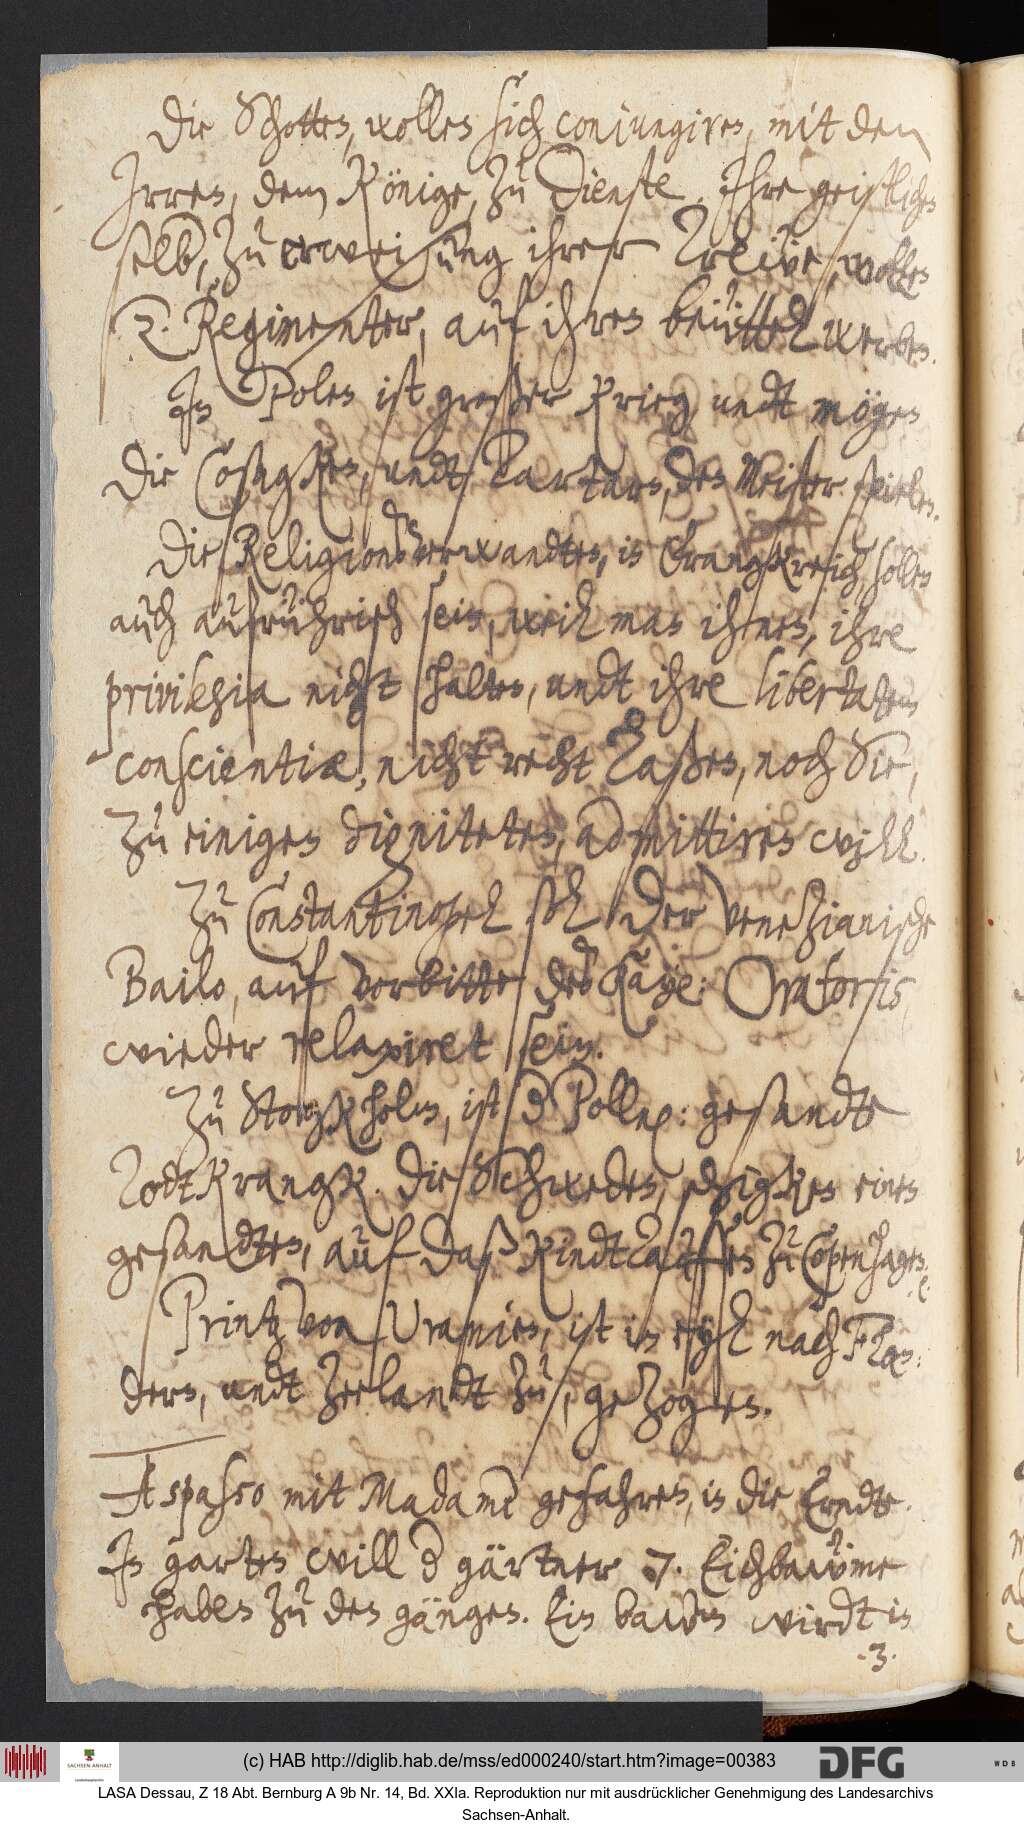 Die Schotten, wollen sich coniungiren, mit den
Irren, dem Könige, zu Dienste. Ihre geistlichen
selb, zu erweisung ihrer Treüe, wollen
2. Regimenter, auf ihren beüttel werben.
In Polen ist großer Krieg undt mögen
die Cosagken, undt Tartarn, den Meister spielen.
Die Religionsverwandten, in Frangkreich, sollen
auch aufrührisch sein, weil man ihnen, ihre
privilegia nicht halten, undt ihre libertatem
conscientiæ, nicht recht laßen, noch Sie,
zu einigen digniteten, admittiren will.
Zu Constantinopel sol der Venezianische
Bailo, auf vorbitte des Kayß: Oratoris,
wieder relaxiret sein.
Zu Stogkholm, ist d Pollnische gesandte
Todtkrangk. Die Schweden, schigken einen
gesandten, auf daß Kindtauffen zu Copenhagen.
Printz von Uranien, ist in eyl nach Flan:
dern, undt Zeelandt zu, gezogen.
A spasso mit Madame gefahren, in die Erndte.
In garten will d gärtner 7. Eichbaüme
haben zu den gängen. Ein bawm wirdt in
.3.
(c) HAB http://diglib.hab.de/mss/ed000240/start.htm?image=00383
SACHSEN-ANHALT
DFG
WDB
LASA Dessau, Z 18 Abt. Bernburg A 9b Nr. 14, Bd. XXIa. Reproduktion nur mit ausdrücklicher Genehmigung des Landesarchivs
Sachsen-Anhalt.